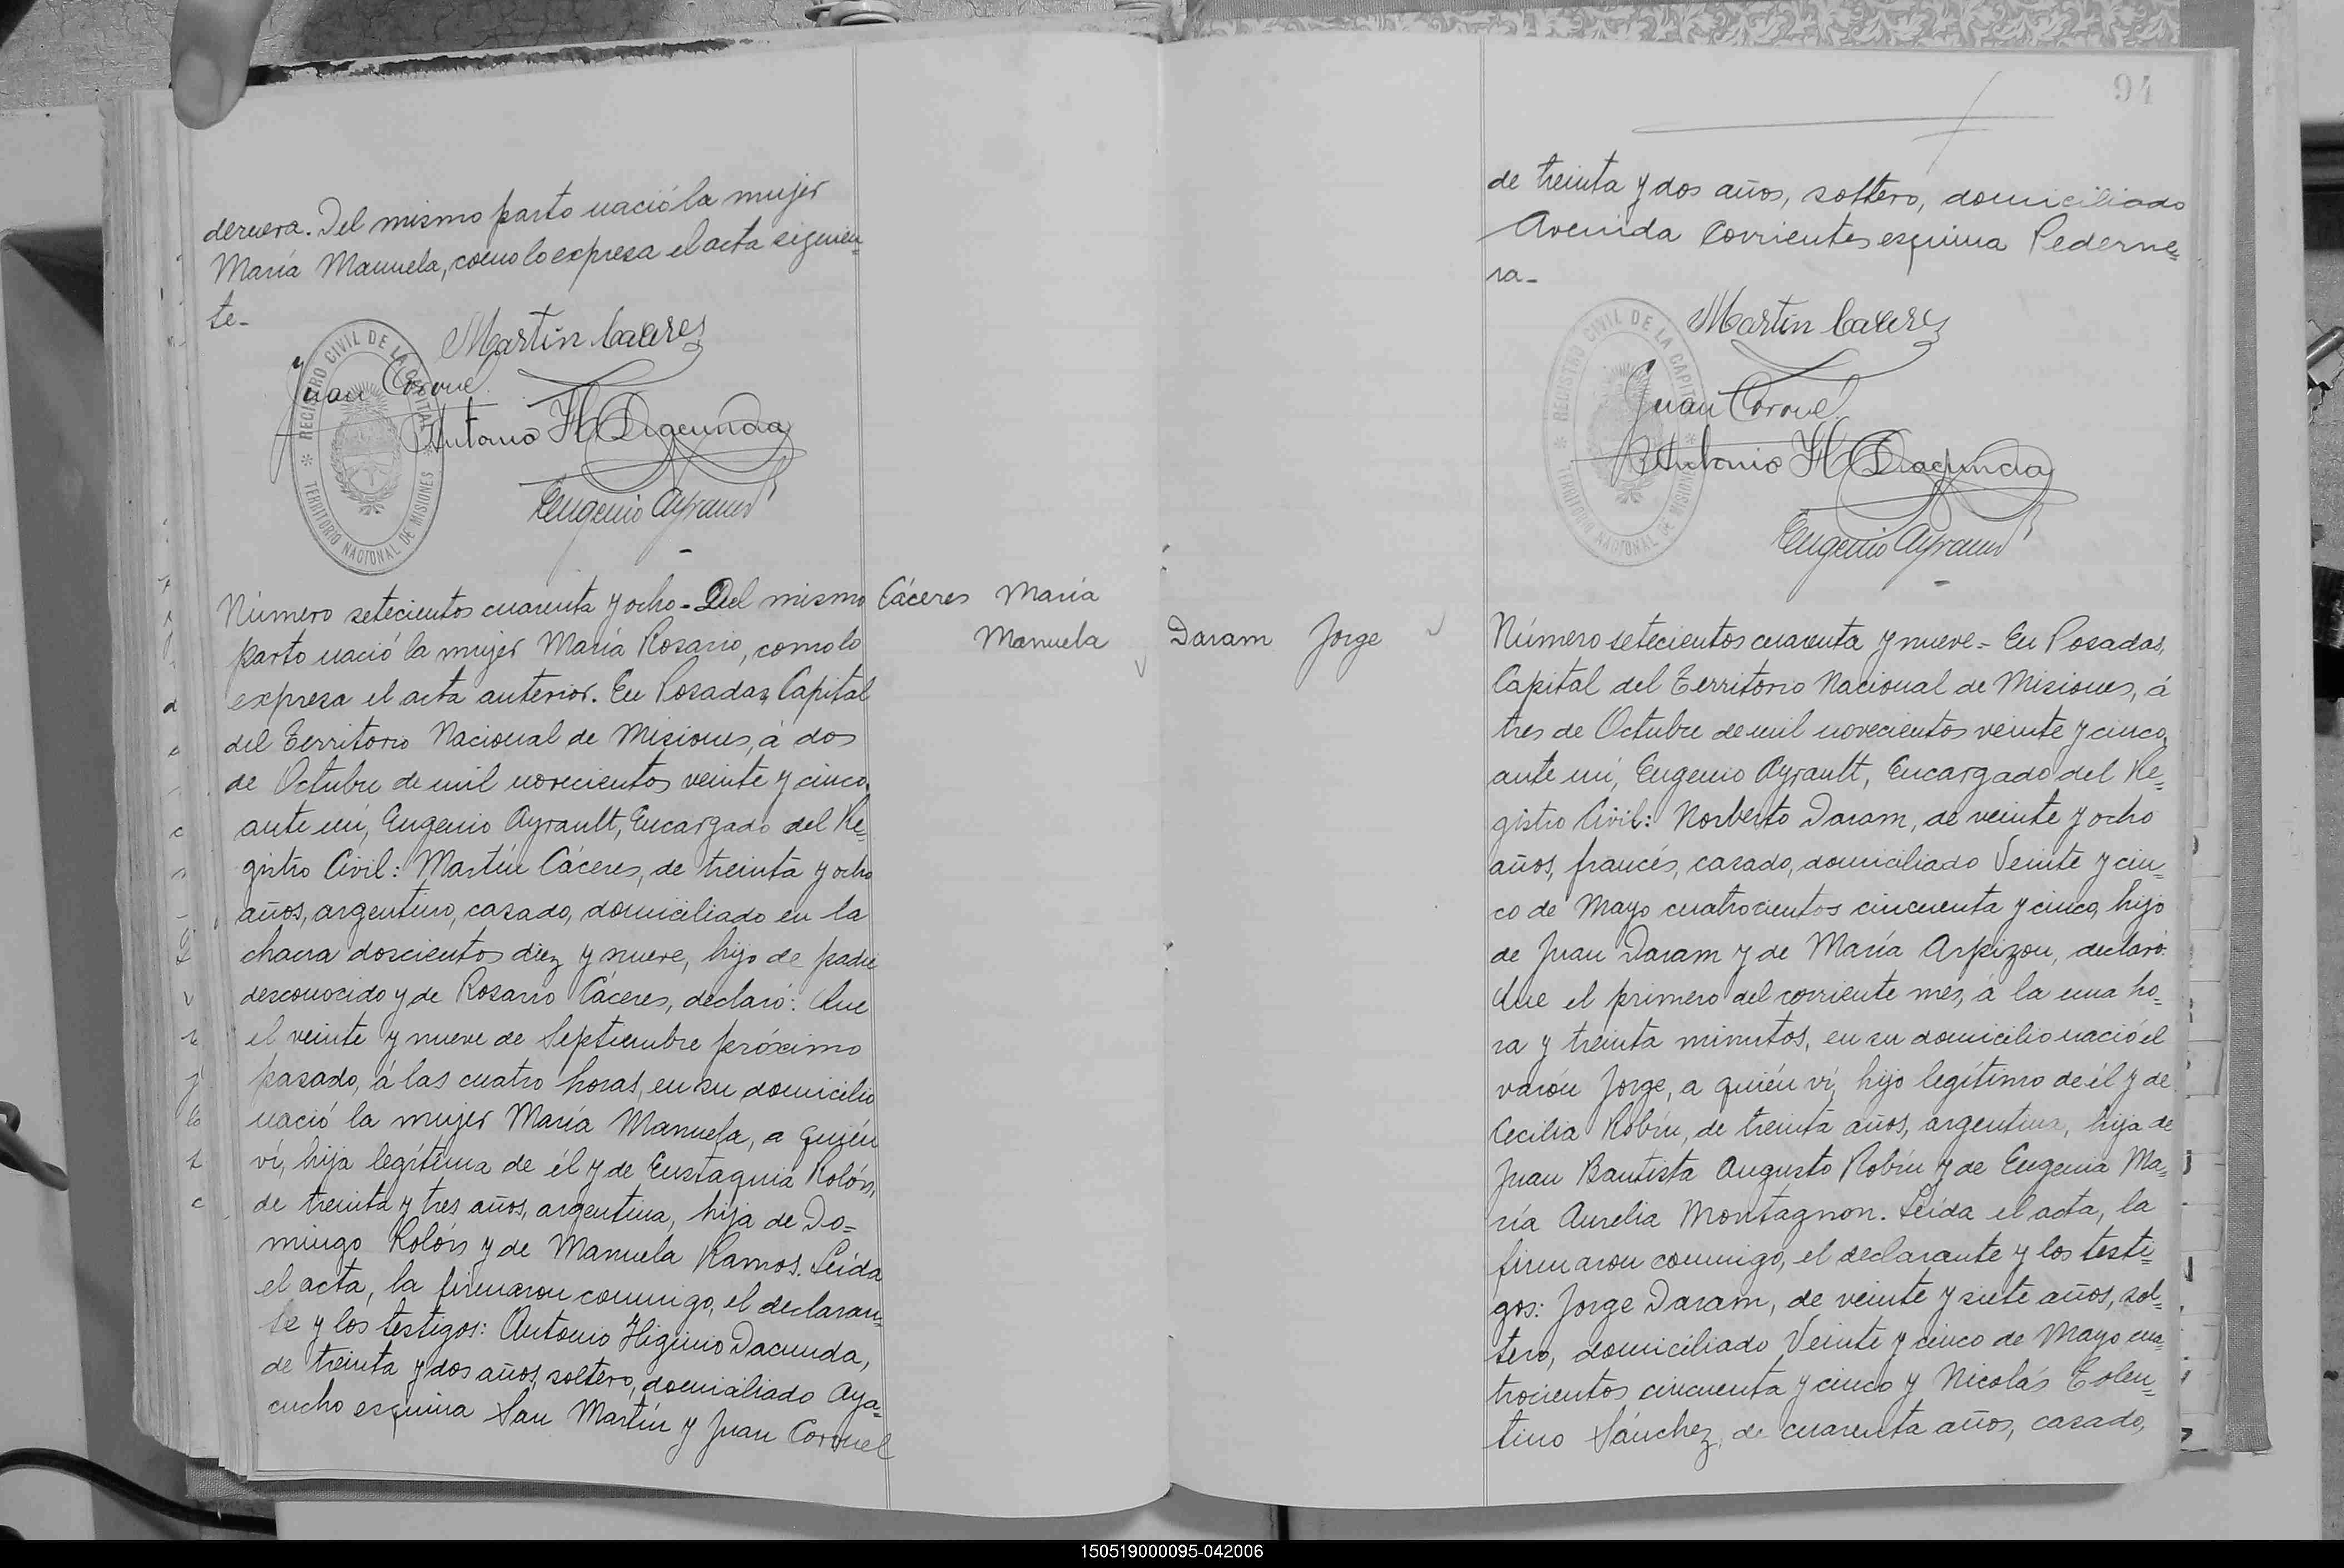 dernera. Del mismo parto nació la mujer
María Manuela, como lo expresa el acta siguien=
te-
Martín Caceres
Juan Coronel
Antonio H Dacunda
Eugenio Ayrault
REGISTRO CIVIL DE LA CAPITAL
TERRITORIO NACIONAL DE MISIONES
Cáceres María
Manuela
Número setecientos cuarenta y ocho- Del mismo
parto nació la mujer María Rosario, como lo
expresa el acta anterior. En Posadas, Capital
del Territorio Nacional de Misiones, á dos
de Octubre de mil novecientos veinte y cinco,
ante mí, Eugenio Ayrault, Encargado del Re=
gistro Civil: Martín Cáceres, de treinta y ocho
años, argentino, casado, domiciliado en la
chacra doscientos diez y nueve, hijo de padre
desconocido y de Rosario Cáceres, declaró: Que
el veinte y nueve de Septiembre próximo
pasado, á las cuatro horas, en su domicilio
nació la mujer María Manuela, a quién
ví, hija legítima de él y de Eustaquia Rolón,
de treinta y tres años, argentina, hija de Do=
mingo Rolón y de Manuela Ramos. Leída
el acta, la firmaron conmigo, el declaran=
te y los testigos: Antonio Higinio Dacunda,
de treinta y dos años, soltero, domiciliado Aya=
cucho esquina San Martín y Juan Coronel
94
de treinta y dos años, soltero, domiciliado
Avenida Corrientes esquina Pederne=
ra-
Martín Caceres
Juan Coronel
Antonio H Dacunda
Eugenio Ayrault
REGISTRO CIVIL DE LA CAPITAL
TERRITORIO NACIONAL DE MISIONES
Daram Jorge
Número setecientos cuarenta y nueve- En Posadas,
Capital del Territorio Nacional de Misiones, á
tres de Octubre de mil novecientos veinte y cinco,
ante mí, Eugenio Ayrault, Encargado del Re=
gistro Civil: Norberto Daram, de veinte y ocho
años, francés, casado, domiciliado Veinte y cin=
co de Mayo cuatrocientos cincuenta y cinco, hijo
de Juan Daram y de María Arpizou, declaró:
Que el primero del corriente mes, á la una ho=
ra y treinta minutos, en su domicilio nació el
varón Jorge, a quién ví, hijo legítimo de él y de
Cecilia Robín, de treinta años, argentina, hija de
Juan Bautista Augusto Robín y de Eugenia Ma=
ría Aurelia Montagnon. Leída el acta, la
firmaron conmigo, el declarante y los testi=
gos: Jorge Daram, de veinte y siete años, sol=
tero, domiciliado Veinte y cinco de Mayo cua=
trocientos cincuenta y cinco y Nicolás Tolen=
tino Sánchez, de cuarenta años, casado,
150519000095-042006